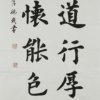 道行厚
懷能色